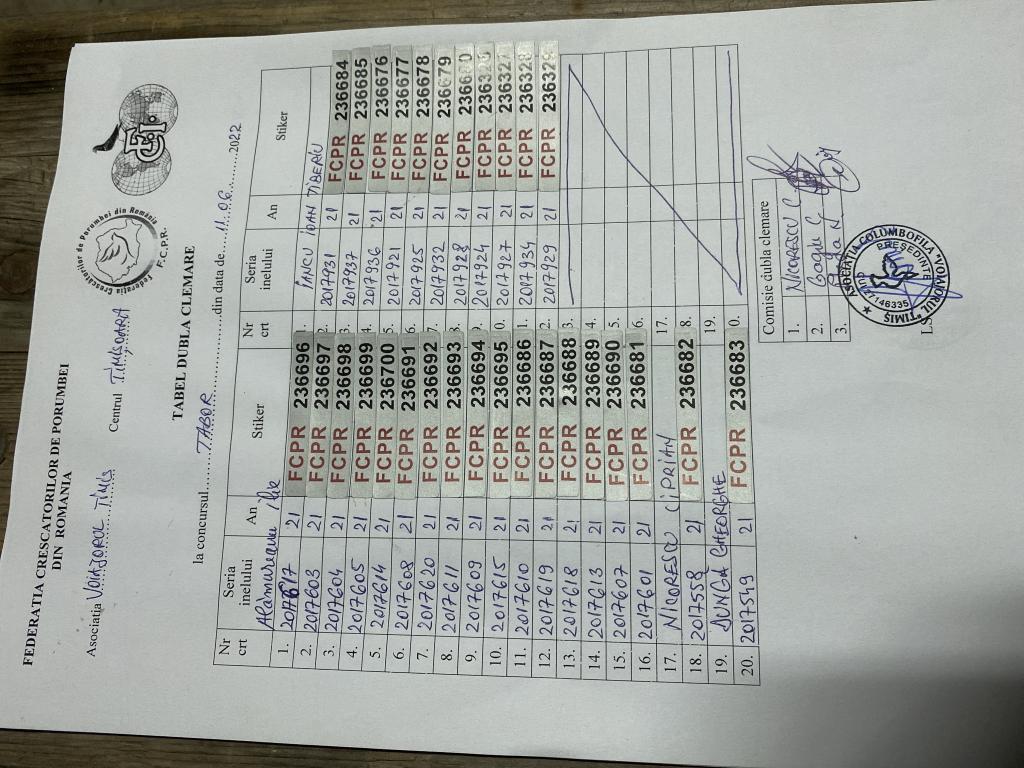 FEDERATIA CRESCATORILOR DE PORUMBEI
DIN ROMANIA
Federatia Crescatorilor de Porumbei din România
F.C.P.R.
FCI
Asociatia VOIAJORUL TIMIS Centrul TIMISOARA
TABEL DUBLA CLEMARE
la concursul TABOR din data de 11.06. 2022
Nr crt Seria inelului An Stiker
1. Alămureanu Ilie
2017617 21 FCPR 236696
2. 2017603 21 FCPR 236697
3. 2017604 21 FCPR 236698
4. 2017605 21 FCPR 236699
5. 2017614 21 FCPR 236700
6. 2017608 21 FCPR 236691
7. 2017620 21 FCPR 236692
8. 2017611 21 FCPR 236693
9. 2017609 21 FCPR 236694
10. 2017615 21 FCPR 236695
11. 2017610 21 FCPR 236686
12. 2017619 21 FCPR 236687
13. 2017618 21 FCPR 236688
14. 2017613 21 FCPR 236689
15. 2017607 21 FCPR 236690
16. 2017601 21 FCPR 236681
17. NICORESCU CIPRIAN
18. 2017558 21 FCPR 236682
19. DUNGA GHEORGHE
20. 2017549 21 FCPR 236683
Nr crt Seria inelului An Stiker
1. IANCU IOAN TIBERIU
2. 2017931 21 FCPR 236684
3. 2017937 21 FCPR 236685
4. 2017936 21 FCPR 236676
5. 2017921 21 FCPR 236677
6. 2017925 21 FCPR 236678
7. 2017932 21 FCPR 236679
8. 2017928 21 FCPR
9. 2017924 21 FCPR
0. 2017927 21 FCPR 236327
1. 2017934 21 FCPR 236328
2. 2017929 21 FCPR
3.
4.
5.
6.
17.
8.
19.
0.
Comisie dubla clemare
1. NICORESCU C
2. C
3.
ASOCIATIA COLUMBOFILA "VOIAJORUL TIMIS"
PRESEDINTE
L.S.